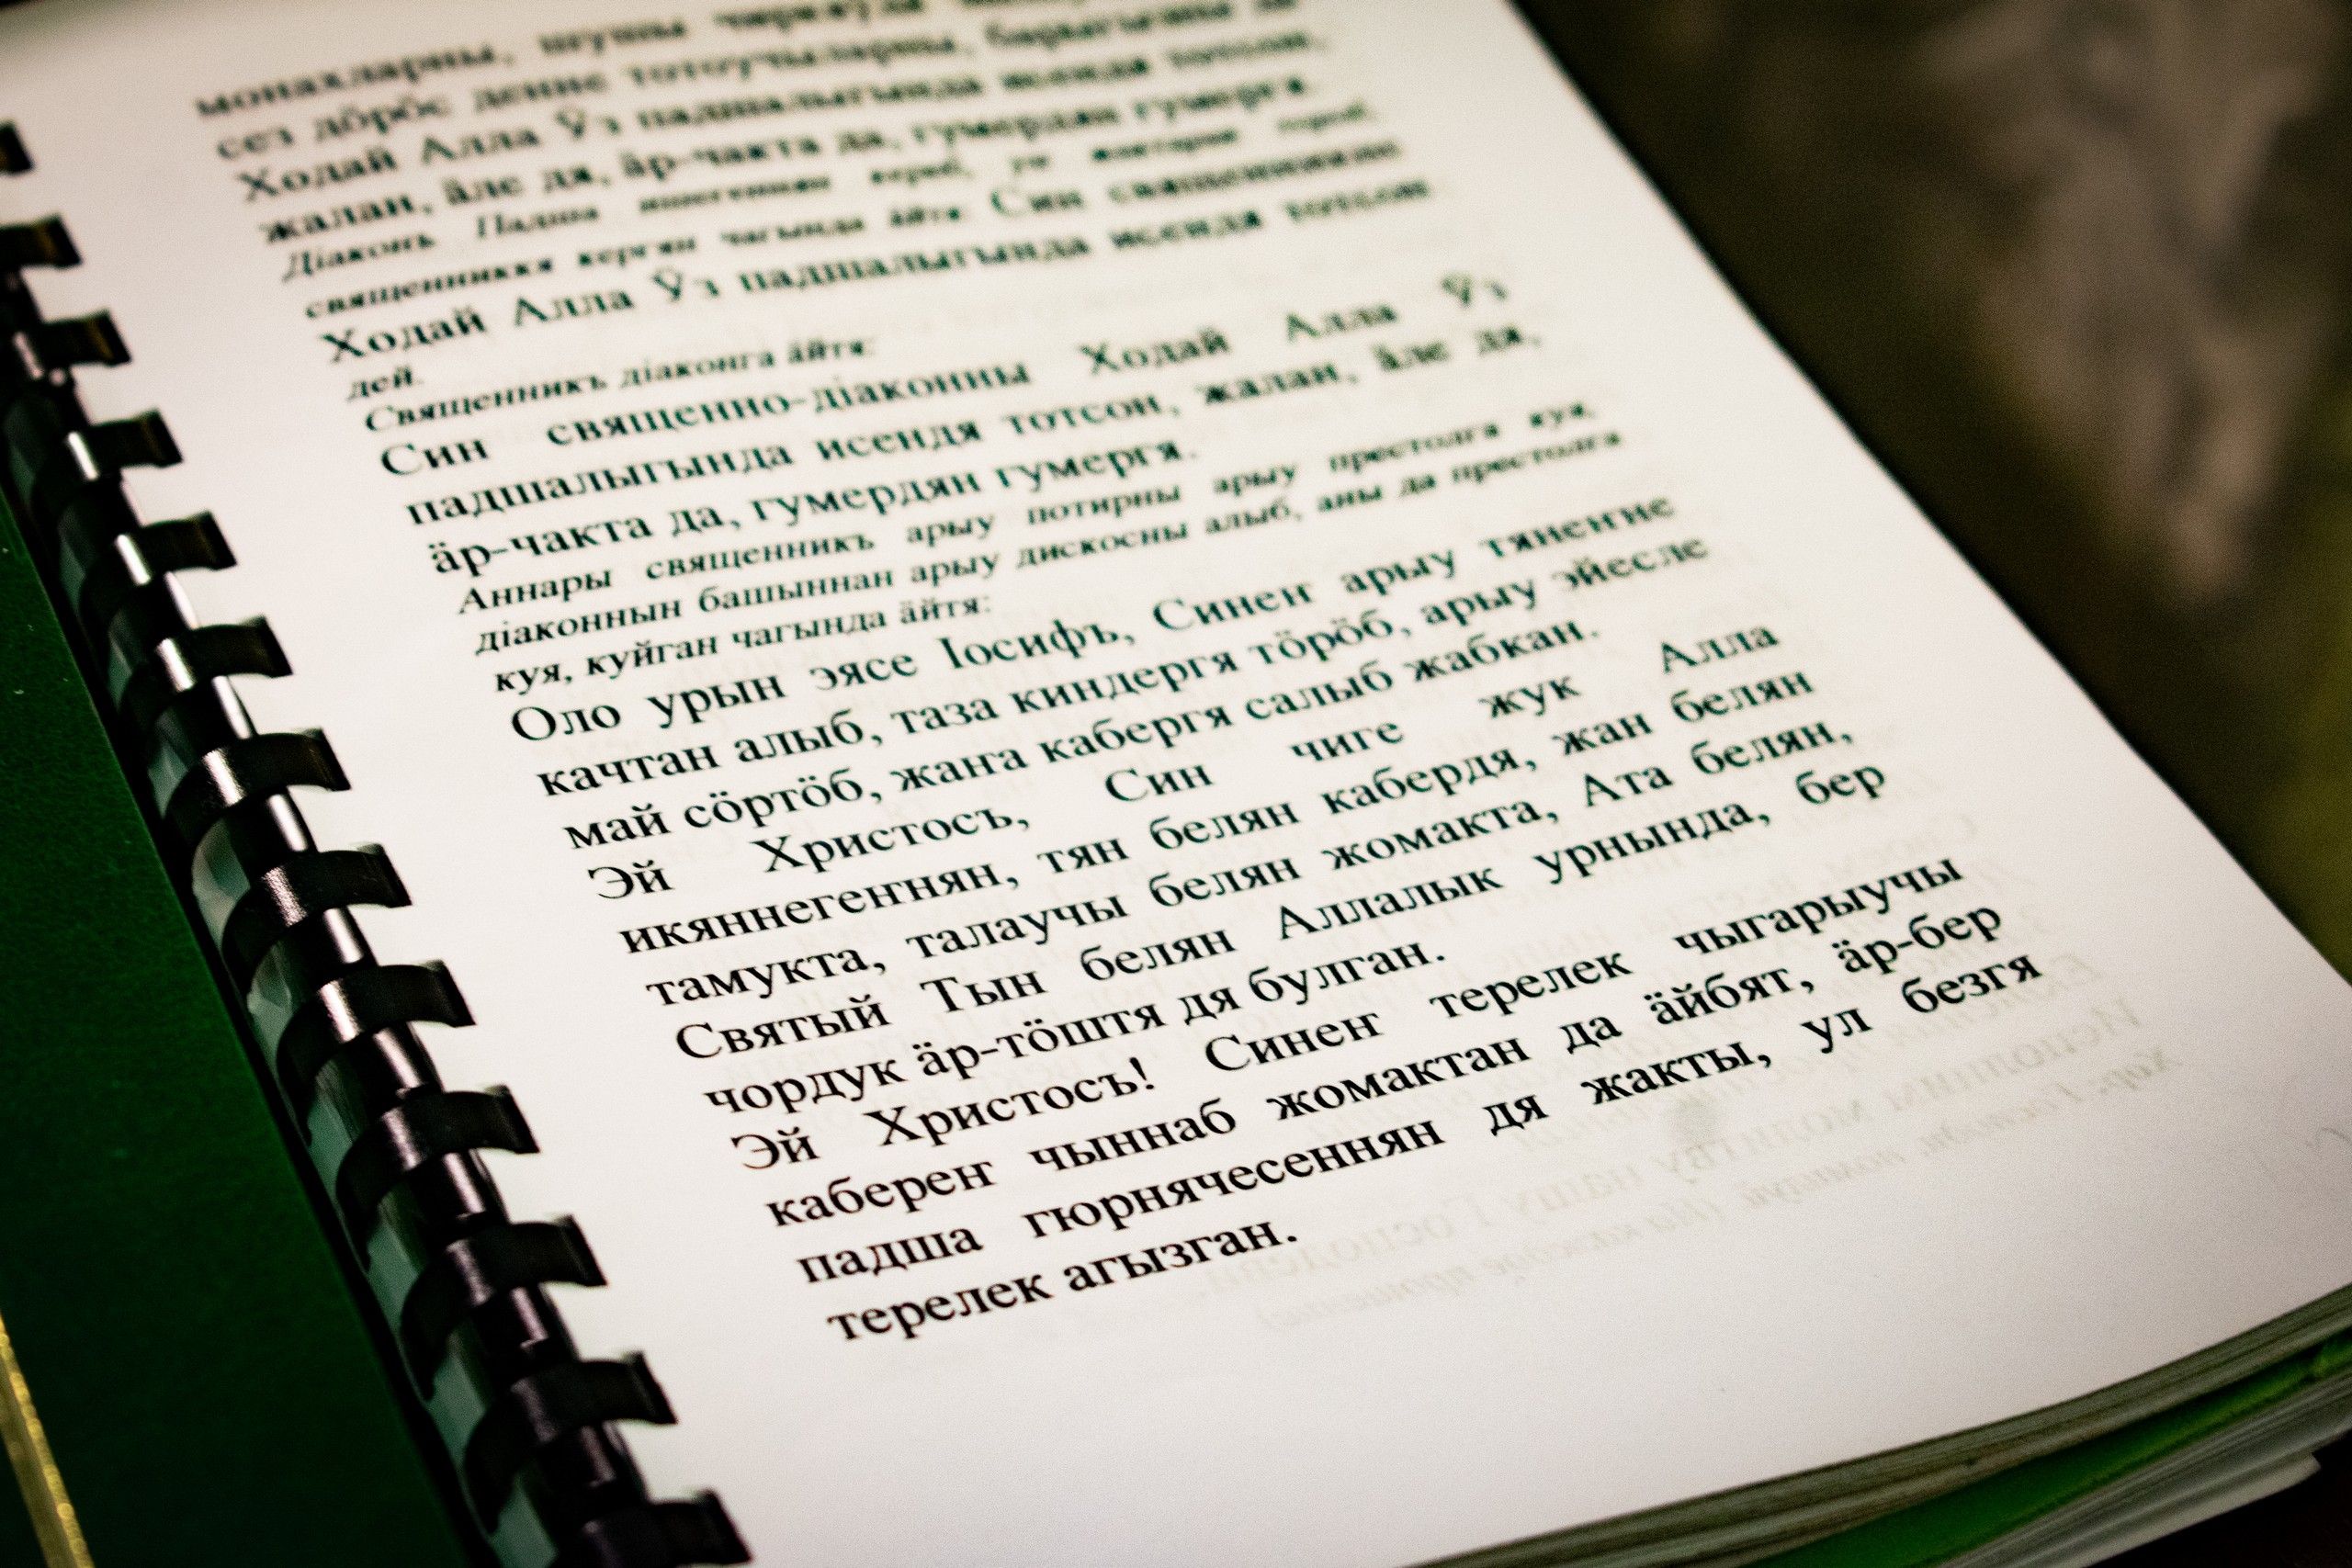 монахларны, шушы
сез дöрöс денне тотоучыларны, барыгызны да
Ходай Алла Ӱз падшалыгында исендя тотсон,
жалан, äле дя, äр-чакта да, гумердян гумергя.
Дiаконъ Падша ишегеннян кереб,
священникка керган чагында äйтя: Син священникны
Ходай Алла Ӱз падшалыгында исендя тотсон
дей.
Священникъ дiаконга äйтя:
Син священно-дiаконны Ходай Алла Ӱз
падшалыгында исендя тотсон, жалан, äле дя,
äр-чакта да, гумердян гумергя.
Аннары священникъ арыу потирны арыу престолга куя,
дiаконнын башыннан арыу дискосны алыб, аны да престолга
куя, куйган чагында äйтя:
Оло урын эясе Iосифъ, Синеҥ арыу тянеҥне
качтан алыб, таза киндергя тöрöб, арыу эйесле
май сöртöб, жаҥа кабергя салыб жабкан.
Эй Христосъ, Син чиге жук Алла
икяннегеҥнян, тян белян кабердя, жан белян
тамукта, талаучы белян жомакта, Ата белян,
Святый Тын белян Аллалык урнында, бер
чордук äр-тöштя дя булган.
Эй Христосъ! Синеҥ терелек чыгарыучы
каберең чыннаб жомактан да äйбят, äр-бер
падша гюрнячесеннян дя жакты, ул безгя
терелек агызган.